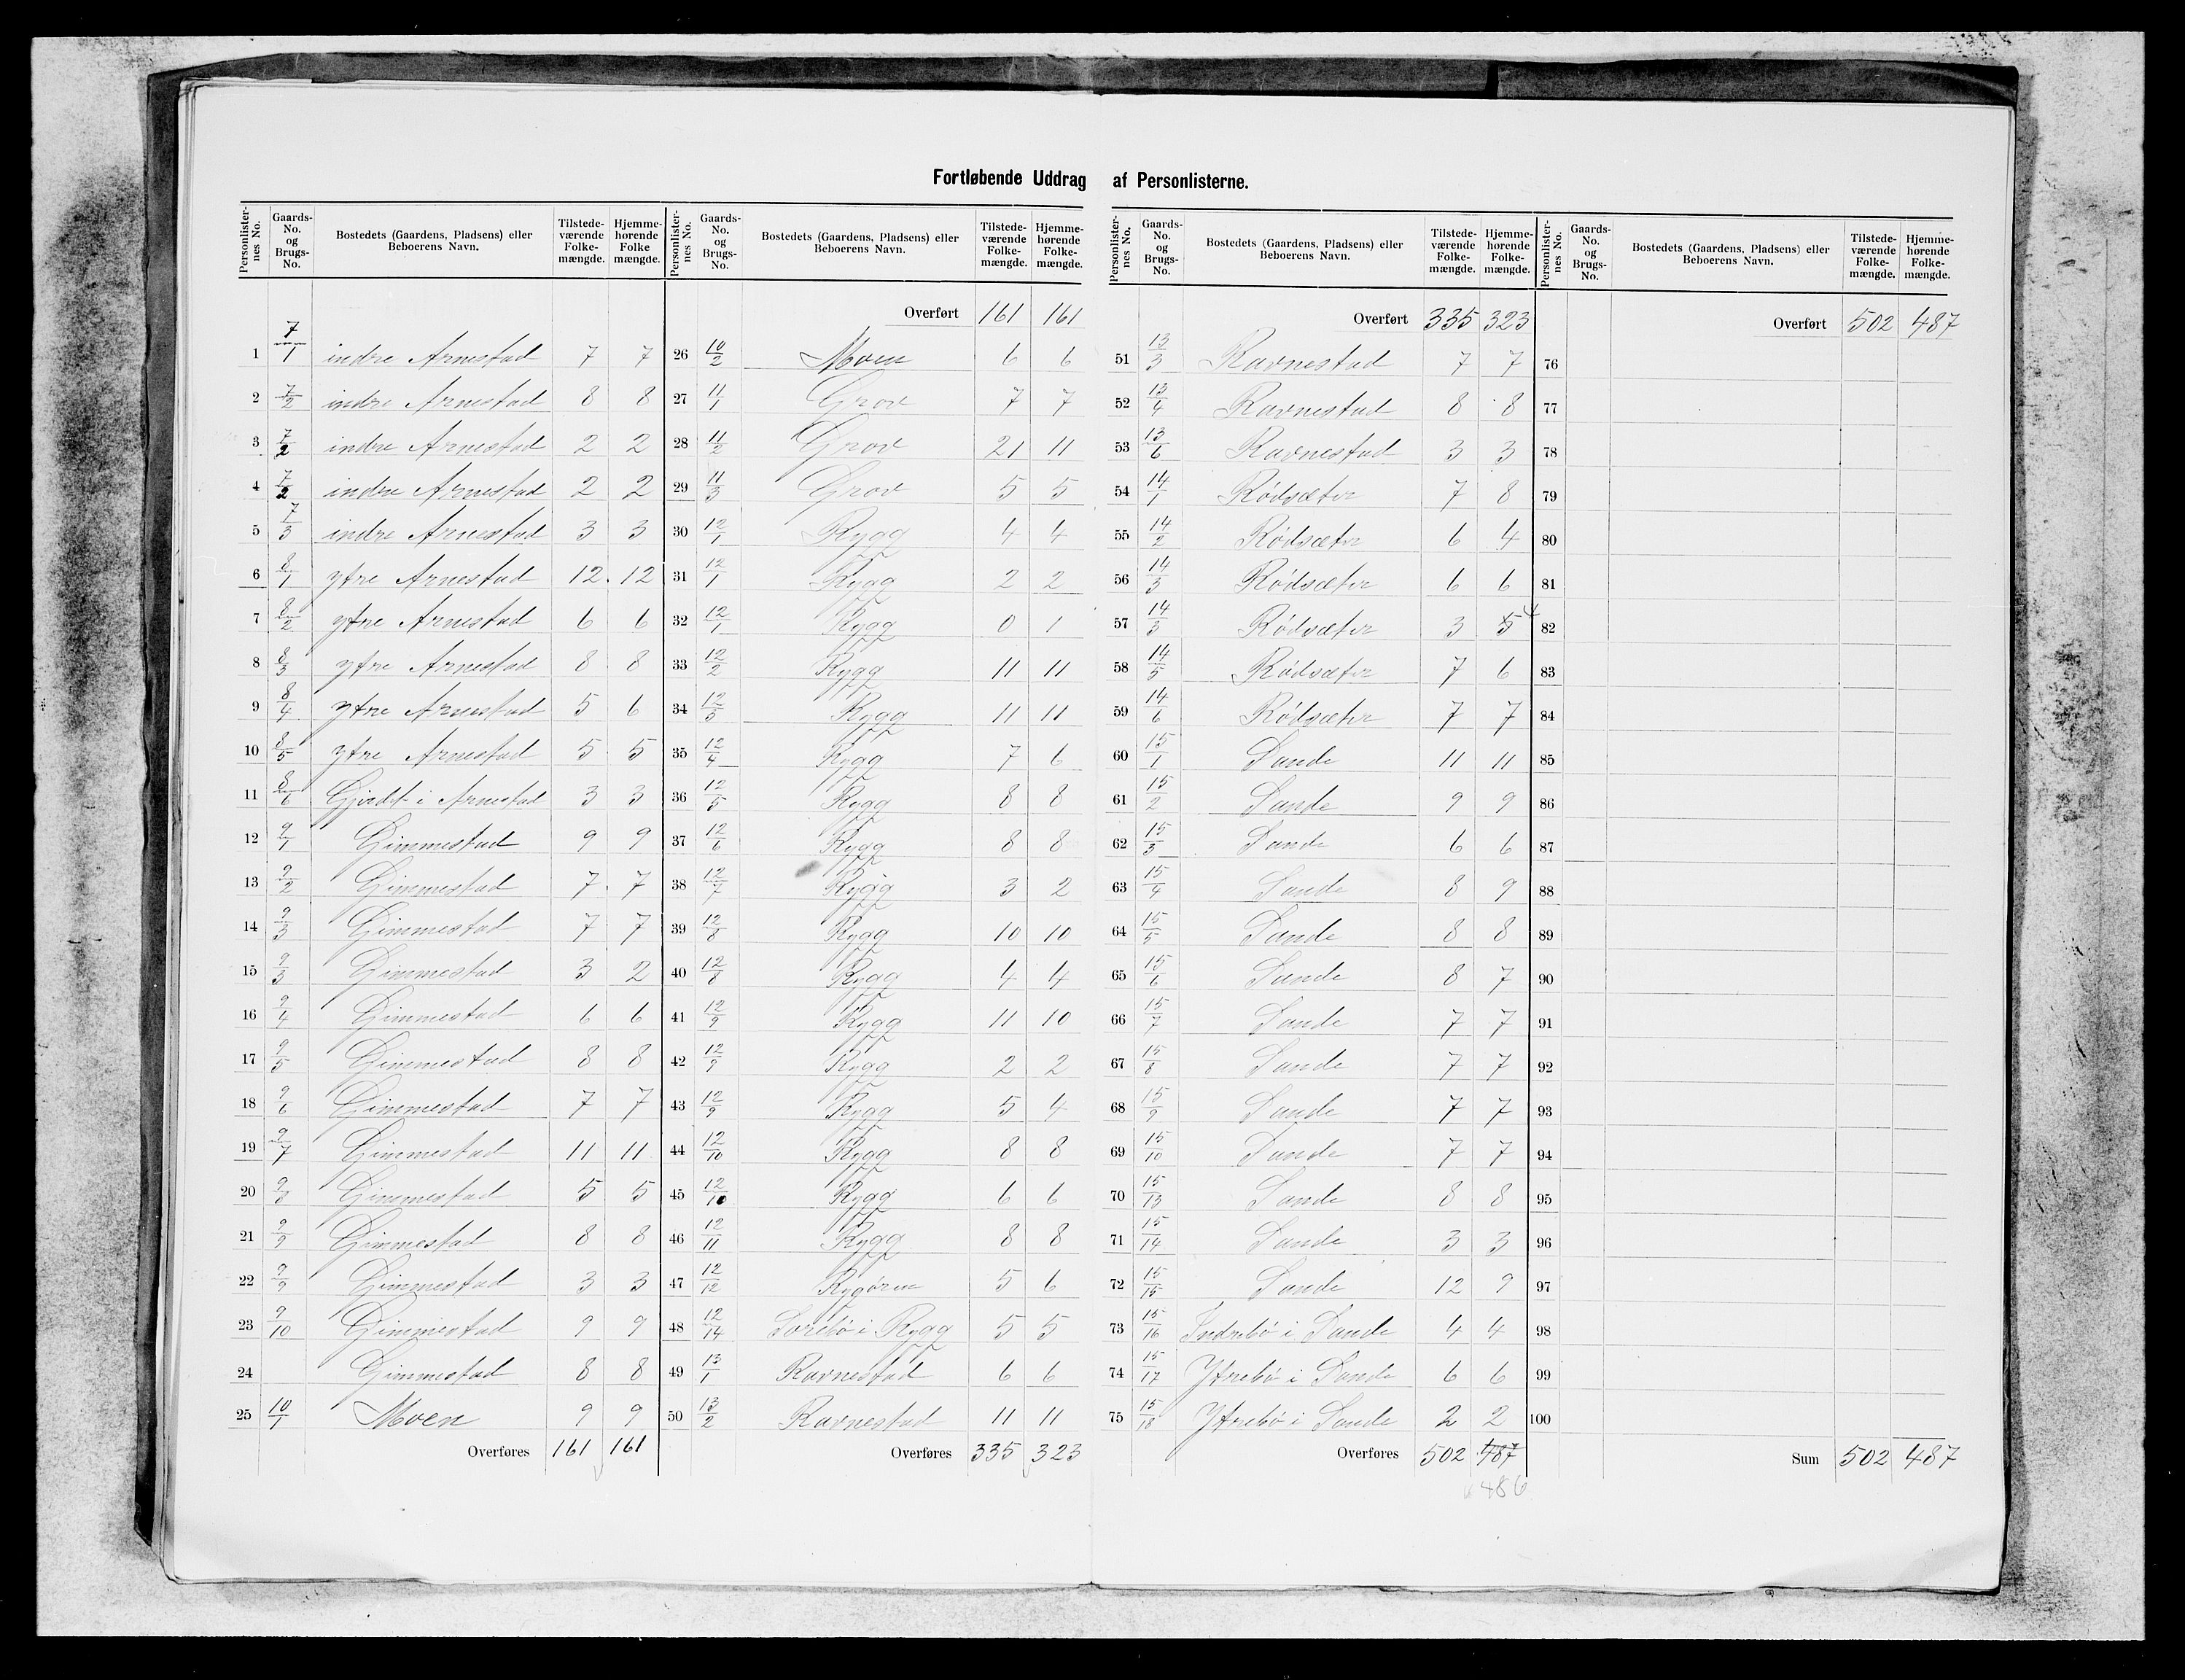 Fortløbende Uddrag af Personlisterne.
Personlisternes No. Gaards-No. og Brugs-No. Bostedets (Gaardens, Pladsens) eller Beboerens Navn. Tilstedeværende Folkemængde. Hjemmehørende Folke mængde.
1 7/1 indre Arnestad 7 7
2 7/2 indre Arnestad 8 8
3 7/2 indre Arnestad 2 2
4 7/2 indre Arnestad 2 2
5 7/3 indre Arnestad 3 3
6 8/1 ytre Arnestad 12 12
7 8/2 ytre Arnestad 6 6
8 8/3 ytre Arnestad 8 8
9 8/4 ytre Arnestad 5 6
10 8/5 ytre Arnestad 5 5
11 8/6 Gjerdet i Arnestad 3 3
12 9/1 Gimmestad 9 9
13 9/2 Gimmestad 7 7
14 9/3 Gimmestad 7 7
15 9/3 Gimmestad 3 2
16 9/4 Gimmestad 6 6
17 9/5 Gimmestad 8 8
18 9/6 Gimmestad 7 7
19 9/7 Gimmestad 11 11
20 9/8 Gimmestad 5 5
21 9/9 Gimmestad 8 8
22 9/9 Gimmestad 3 3
23 9/10 Gimmestad 9 9
24 Gimmestad 8 8
25 10/1 Moen 9 9
Overføres 161 161
Personlisternes No. Gaards-No. og Brugs-No. Bostedets (Gaardens, Pladsens) eller Beboerens Navn. Tilstedeværende Folkemængde. Hjemmehørende Folkemængde.
Overført 161 161
26 10/2 Moen 6 6
27 11/1 Grov 7 7
28 11/2 Grov 21 11
29 11/3 Grov 5 5
30 12/1 Rygg 4 4
31 12/1 Rygg 2 2
32 12/1 Rygg 0 1
33 12/2 Rygg 11 11
34 12/3 Rygg 11 11
35 12/4 Rygg 7 6
36 12/5 Rygg 8 8
37 12/6 Rygg 8 8
38 12/7 Rygg 3 2
39 12/8 Rygg 10 10
40 12/8 Rygg 4 4
41 12/9 Rygg 11 10
42 12/9 Rygg 2 2
43 12/9 Rygg 5 4
44 12/10 Rygg 8 8
45 12/10 Rygg 6 6
46 12/11 Rygg 8 8
47 12/12 Rygøren 5 6
48 12/14 Sørebø i Rygg 5 5
49 13/1 Ravnestad 6 6
50 13/2 Ravnestad 11 11
Overføres 335 323
Personlisternes No. Gaards-No. og Brugs-No. Bostedets (Gaardens, Pladsens) eller Beboerens Navn. Tilstedeværende Folkemængde. Hjemmehørende Folkemængde.
Overført 335 323
51 13/3 Ravnestad 7 7
52 13/4 Ravnestad 8 8
53 13/6 Ravnestad 3 3
54 14/1 Rødsæter 7 8
55 14/2 Rødsæter 6 4
56 14/3 Rødsæter 6 6
57 14/3 Rødsæter 3 5 4
58 14/5 Rødsæter 7 6
59 14/6 Rødsæter 7 7
60 15/1 Sande 11 11
61 15/2 Sande 9 9
62 15/3 Sande 6 6
63 15/4 Sande 8 9
64 15/5 Sande 8 8
65 15/6 Sande 8 7
66 15/7 Sande 7 7
67 15/8 Sande 7 7
68 15/9 Sande 7 7
69 15/10 Sande 7 7
70 15/13 Sande 8 8
71 15/14 Sande 3 3
72 15/15 Sande 12 9
73 15/16 Indrebø i Sande 4 4
74 15/17 Ytrebø i Sande 6 6
75 15/18 Ytrebø i Sande 2 2
Overføres 502 487
486
Personlisternes No. Gaards-No. og Brugs-No. Bostedets (Gaardens, Pladsens) eller Beboerens Navn. Tilstedeværende Folkemængde. Hjemmehørende Folkemængde.
Overført 502 487
76
77
78
79
80
81
82
83
84
85
86
87
88
89
90
91
92
93
94
95
96
97
98
99
100
Sum 502 487